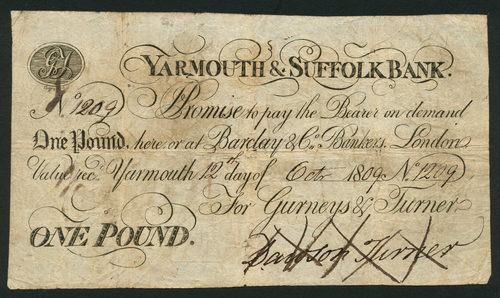 YARMOUTH & SUFFOLK BANK.
No. 1209 Promise to pay the Bearer on demand
One Pound, here or at Barclay & Co. Bankers, London
Value recd. Yarmouth 12th day of Octr 1809 No. 1209
For Gurneys & Turner
ONE POUND.
Dawson Turner